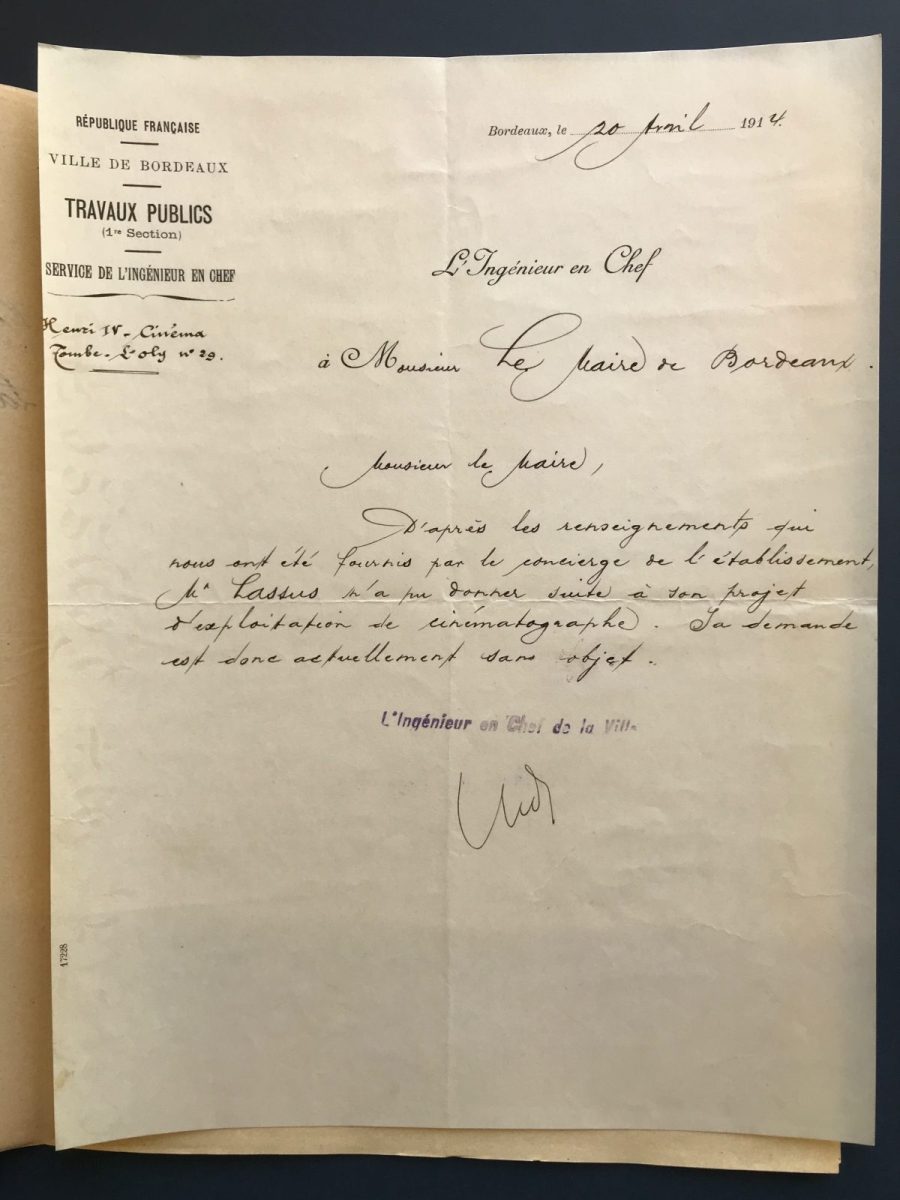 RÉPUBLIQUE FRANÇAISE
VILLE DE BORDEAUX
TRAVAUX PUBLICS
(1re Section)
SERVICE DE L'INGÉNIEUR EN CHEF
Henri IV - Cinéma
Tombe-L'oly n° 29.
Bordeaux, le 20 Avril 1914.
L'Ingénieur en Chef
à Monsieur Le Maire de Bordeaux.
Monsieur le Maire,
D'après les renseignements qui
nous ont été fournis par le concierge de l'établissement,
Mr Lassus n'a pu donner suite à son projet
d'exploitation de cinématographe. Sa demande
est donc actuellement sans objet.
L'Ingénieur en Chef de la Ville
17228